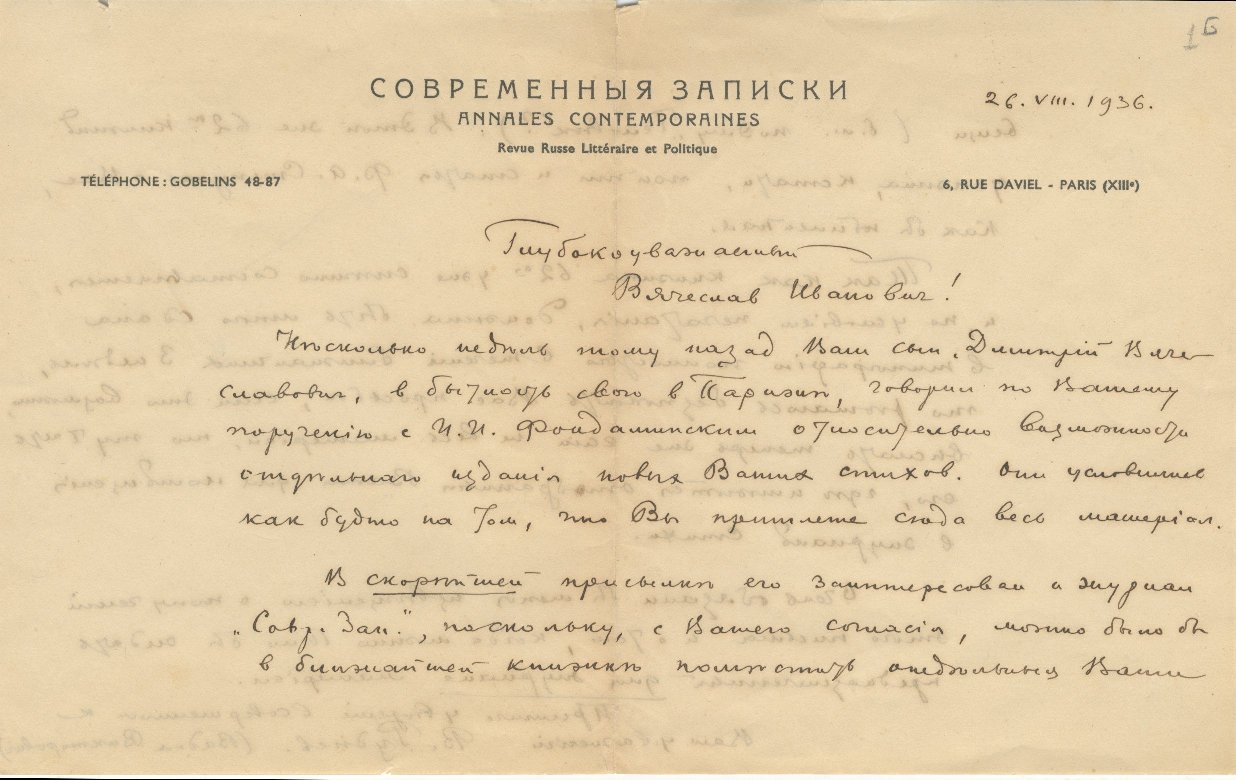 1Б
СОВРЕМЕННЫЯ ЗАПИСКИ
26. VIII. 1936.
ANNALES CONTEMPORAINES
Revue Russe Littéraire et Politique
TÉLÉPHONE : GOBELINS 48-87
6, RUE DAVIEL - PARIS (XIIIe)
Глубокоуважаемый
Вячеслав Иванович!
Нѣсколько недѣль тому назад Ваш сын, Дмитрій Вяче-
славович, в бытность свою в Парижѣ, говорил по Вашему
порученію с И.И. Фондаминским относительно возможности
отдѣльнаго изданія новых Ваших стихов. Они условились
как будто на том, что Вы пришлете сюда весь матеріал.
В скорѣйшей присылкѣ его заинтересован и журнал
„Совр. Зап.", поскольку, с Вашего согласія, можно было бы
в ближайшей книжкѣ помѣстить отдѣльныя Ваши